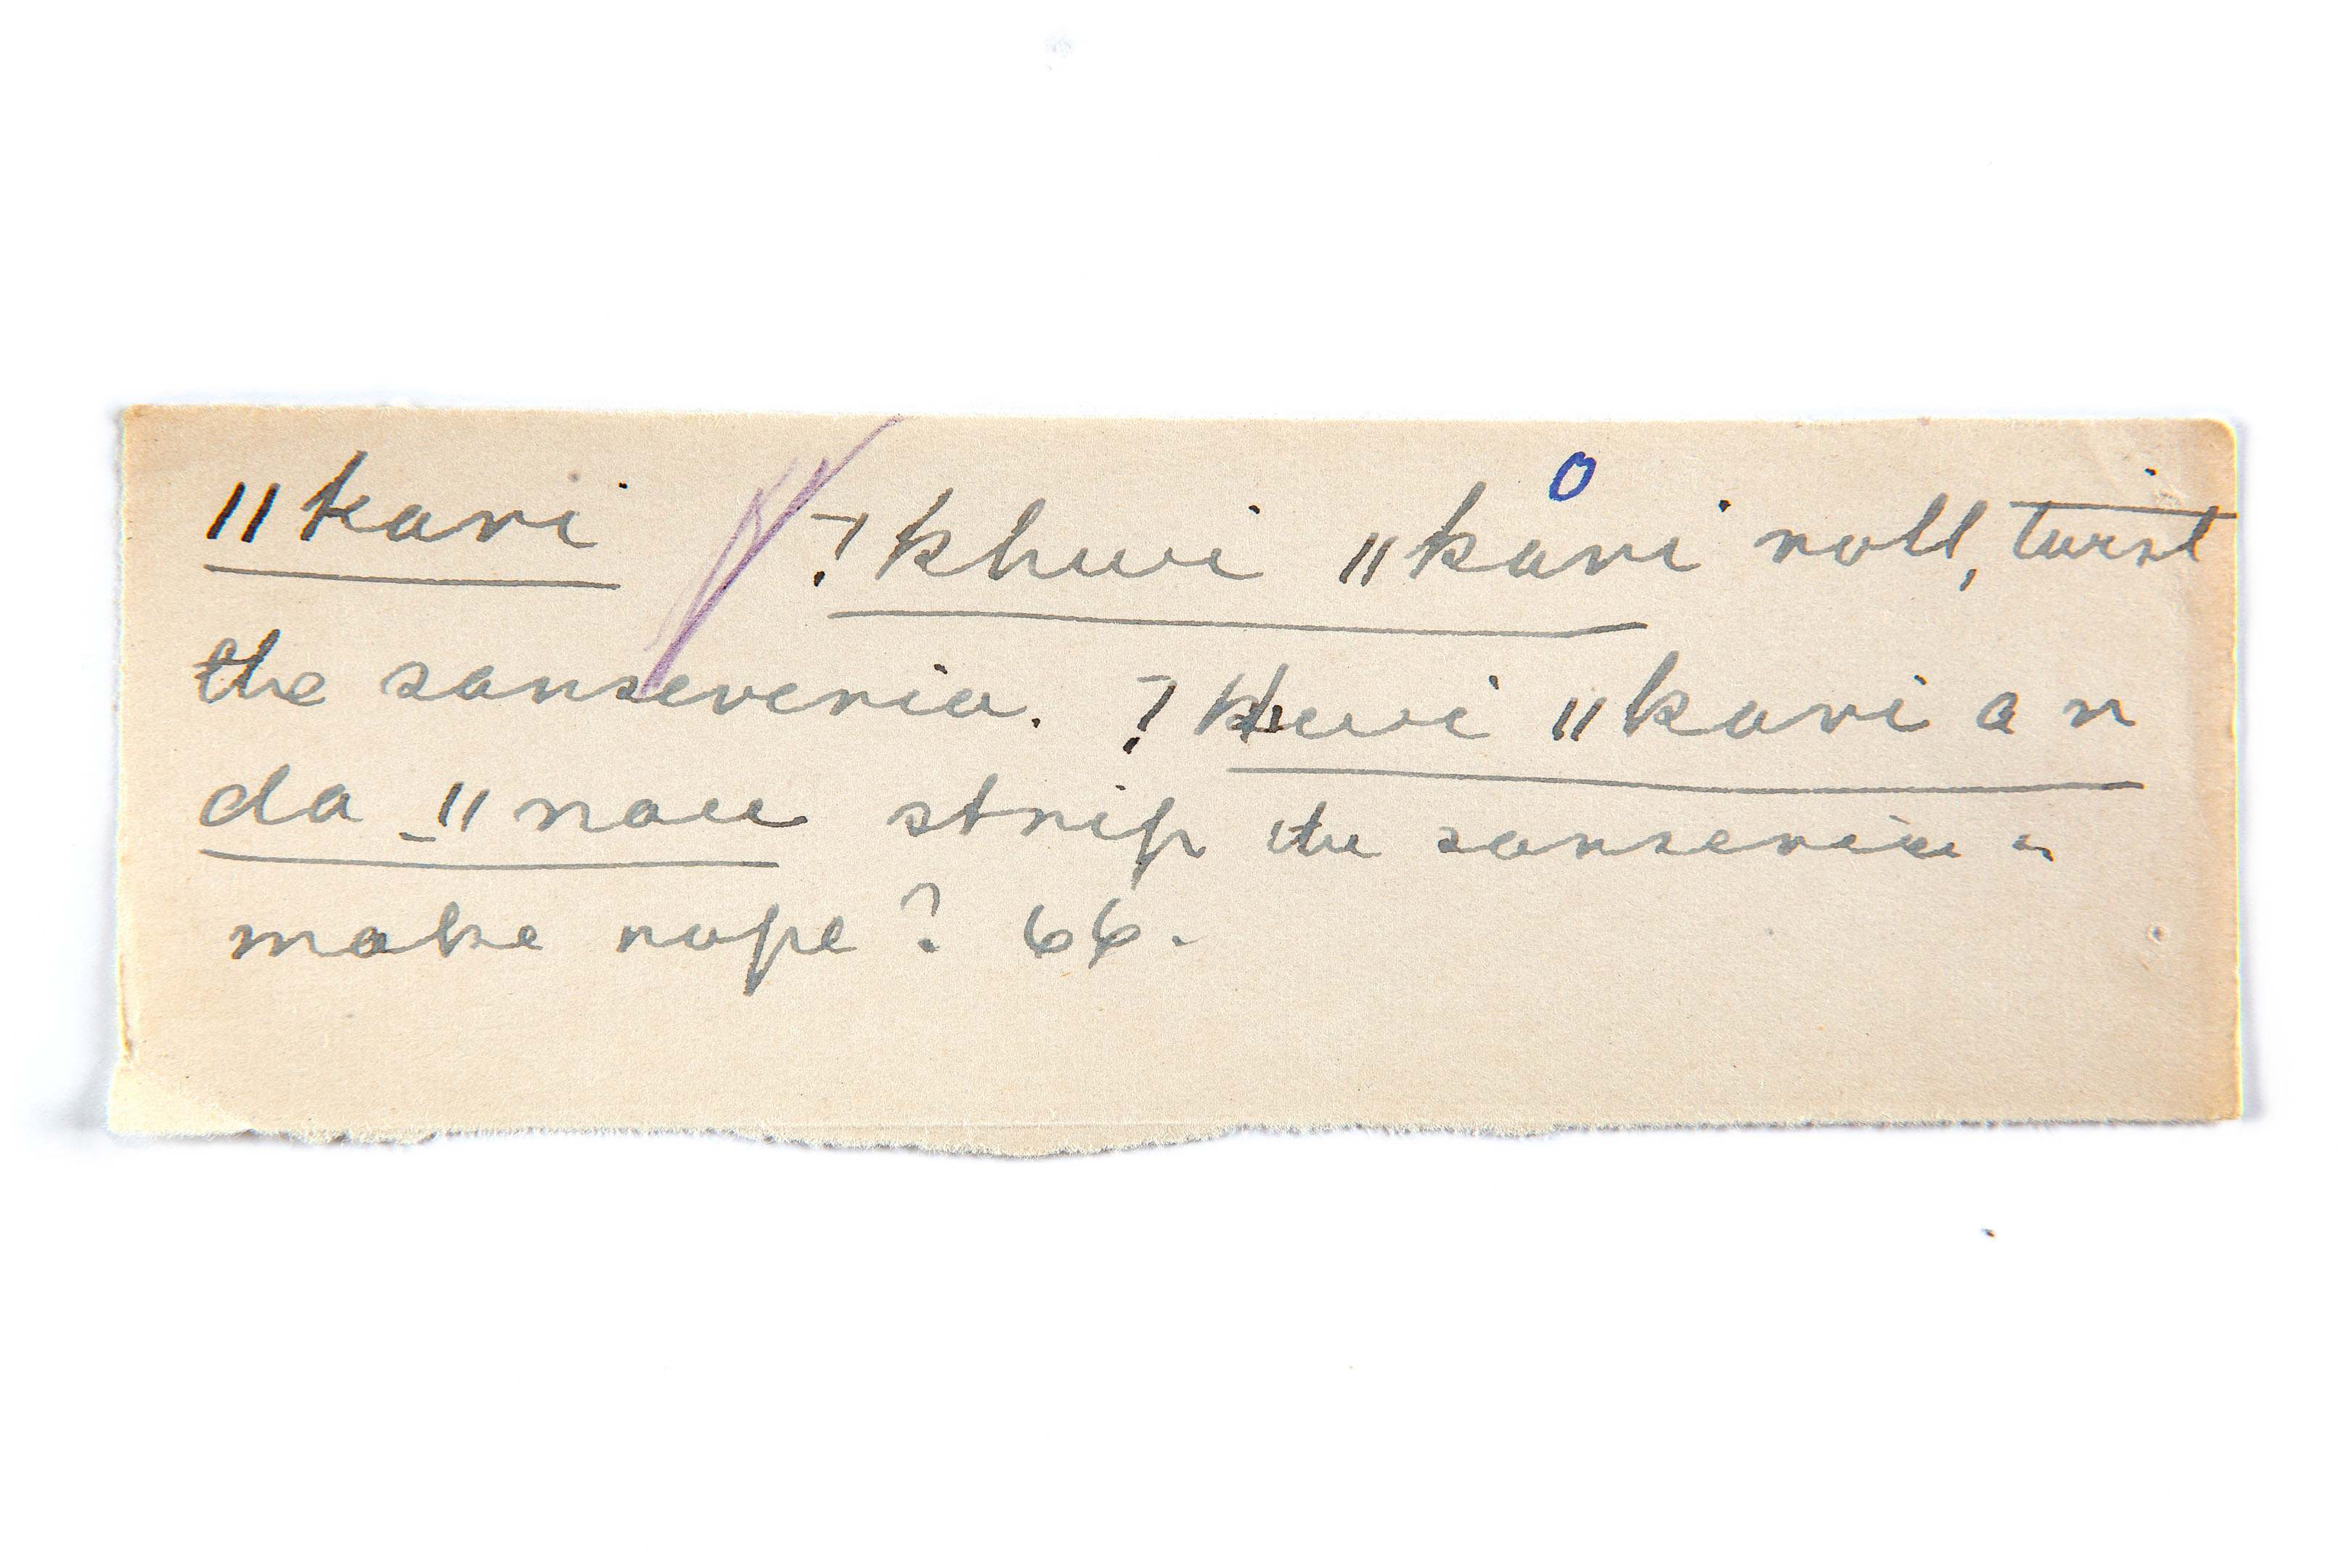 ǁkari !khwi ǁkari roll, twist
the sanseveria. !khwi ǁkari a n
da _ǁnau strip the sanseveria &
make rope? 66.